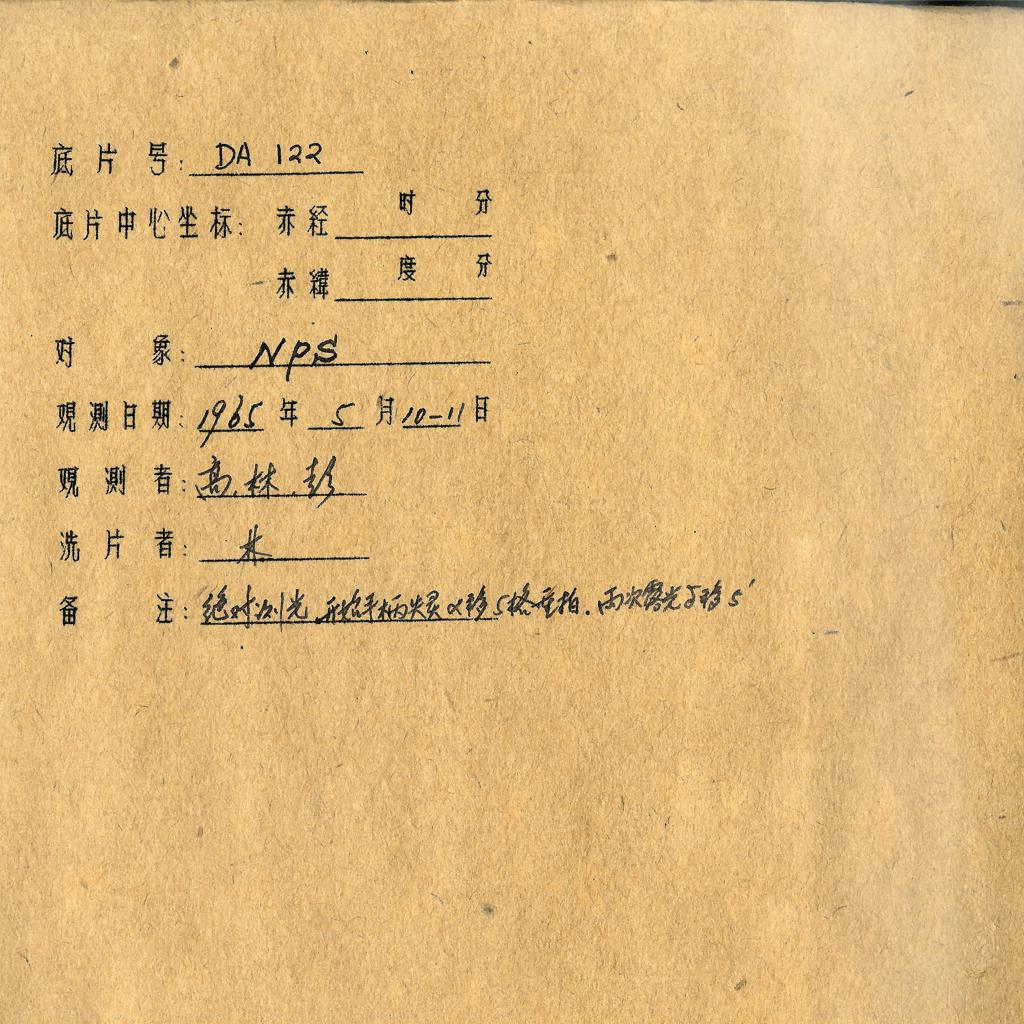 底片号: DA 122
底片中心坐标: 赤经 时 分
赤緯 度 分
对 象: NPS
观测日期: 1965 年 5 月 10-11 日
观测者: 高.林.彭
洗片者: 林
备 注: 绝对测光 开始手柄 α移5格重拍. 两次露光 δ移5'